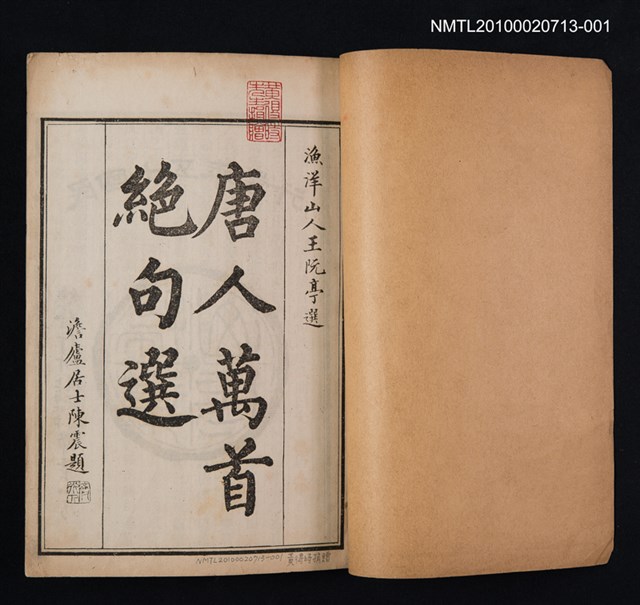 NMTL20100020713-001
黃得時
先生捐贈
漁洋山人王阮亭選
唐人萬首
絕句選
澹廬居士陳震題
NMTL20100020713-001 黃得時捐贈